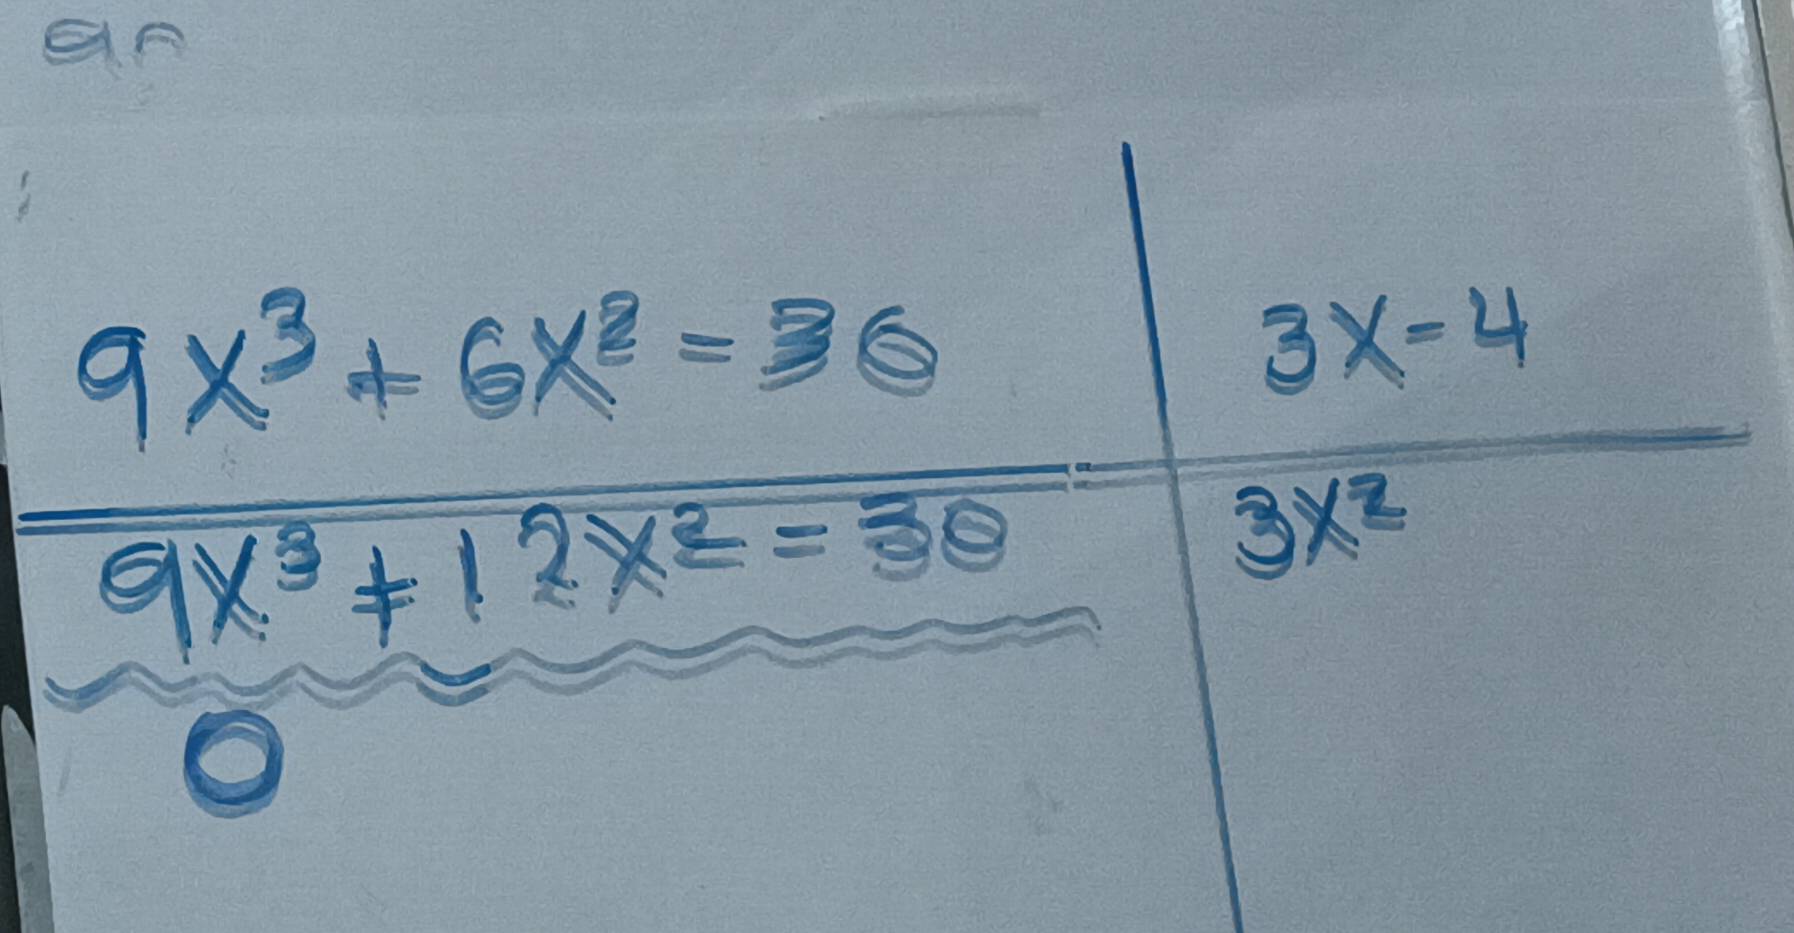 9x³ + 6x² = 36
3x - 4
9x³ + 12x² = 30
3x²
0